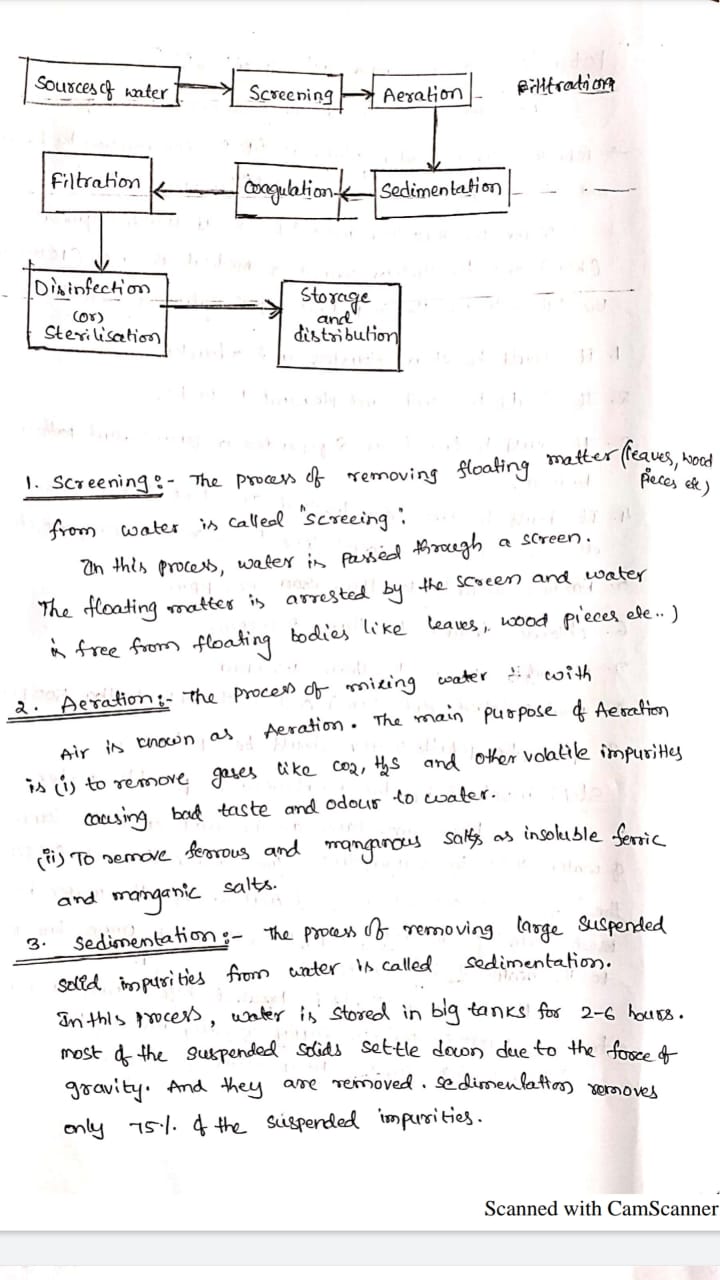 Sources of water
Screening
Aeration
Filtration
Filtration
Coagulation
Sedimentation
Disinfection
(or)
Sterilisation
Storage
and
distribution
1. Screening :- The process of removing floating matter (leaves, wood
pieces etc)
from water is called "screeing".
In this process, water is passed through a screen.
The floating matter is arrested by the screen and water
is free from floating bodies like leaves, wood pieces etc.. )
2. Aeration :- The process of mixing water with
Air is known as Aeration. The main purpose of Aeration
is (i) to remove gases like CO2, H2S and other volatile impurities
causing bad taste and odour to water.
(ii) To remove ferrous and manganous salts as insoluble ferric
and manganic salts.
3. Sedimentation :- The process of removing large suspended
solid impurities from water is called sedimentation.
In this process, water is stored in big tanks for 2-6 hours.
most of the suspended solids settle down due to the force of
gravity. And they are removed. sedimentation removes
only 75% of the suspended impurities.
Scanned with CamScanner